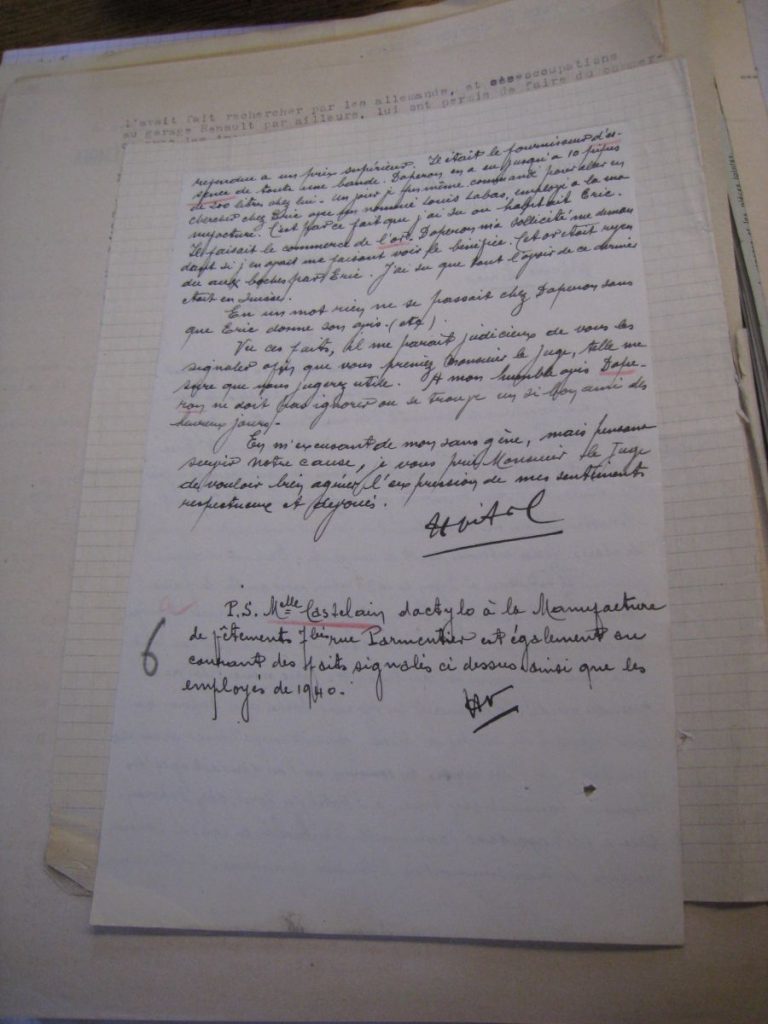 l'avait fait rechercher par les allemands, et ses occupations
au garage Renault par ailleurs, lui ont permis de faire du commer-
revendue a un prix supérieur. Il était le fournisseur d'es-
sence de toute une bande. Daperon en a eu jusqu'a 10 pipes
de 200 litres chez lui. Un jour je fus même commandé pour aller en
chercher chez Eric avec un nommé Louis Labas, employé a la ma
nufacture. C'est par ce fait que j'ai su ou habitait Eric.
Il faisait le commerce de l'or. Daperon m'a sollicité me deman
dant si j'en avais me faisant voir le bénéfice. Cet or était reven
du aux boches par Eric. J'ai su que tout l'avoir de ce dernier
était en Suisse.
En un mot rien ne se passait chez Daperon sans
que Eric donne son avis - (etc).
Vu ces faits, il me parait judicieux de vous les
signaler afin que vous preniez Monsieur le Juge, telle me
sure que vous jugerez utile. A mon humble avis Dape-
ron ne doit pas ignorer ou se trouve un si bon ami des
heureux jours.
En m'excusant de mon sans gêne, mais pensant
servir notre cause, je vous prie Monsieur le Juge
de vouloir bien agréer l'expression de mes sentiments
respectueux et dévoués.
HVital
P.S. Melle Castelain dactylo à la Manufacture
de vêtements 7bis rue Parmentier est également au
courant des faits signalés ci dessus ainsi que les
employés de 1940.
HV
6